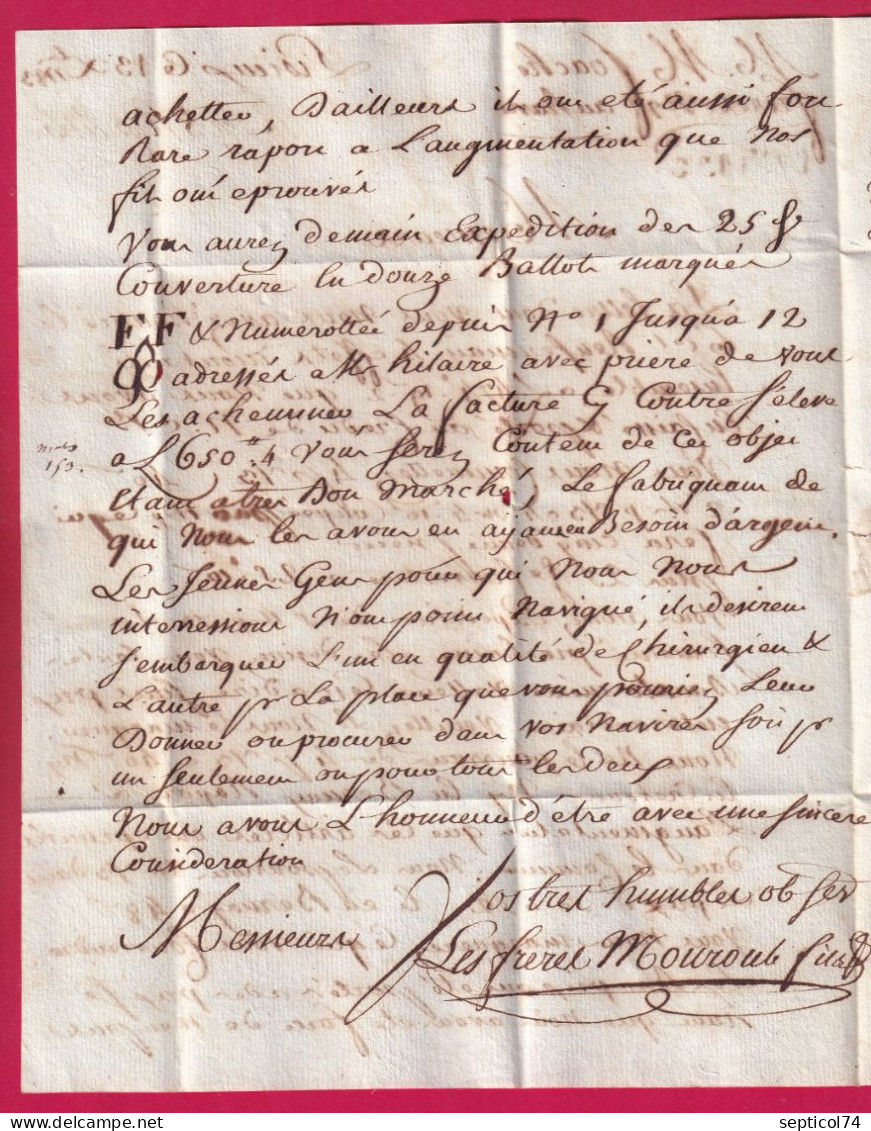 achetter, Dailleurs il ont eté aussi fort
Rare raport a L'augmentation que Nos
fils ont eprouvés
Vous aurez demain Expedition des 25
Couverture en douze Ballots marqués
FF & Numerottée depuis No 1 Jusqu'a 12
adressés a Mr hilaire avec priere de vous
Les acheminer La facture Cy Contre s'eleve
a L 650 " 4 Vous serez Content de Cet objet
Etant a tres Bon marché, Le fabriquant de
qui Nous les avons eu ayant eu Besoin d'argent.
Les Jeunes Gens pour qui Nous Nous
interessions N'ont point Navigué, ils desirent
s'embarquer L'un en qualité de Chirurgien &
L'autre pr La place que vous pouriez Leur
Donner ou procurer dans vos Navires soit pr
un seulement ou pour tous les deux
Nous avons L'honneur d'être avec une sincere
Consideration
Messieurs
Vos tres humbles ob Ser
Les freres Mouroult fils
septicol74